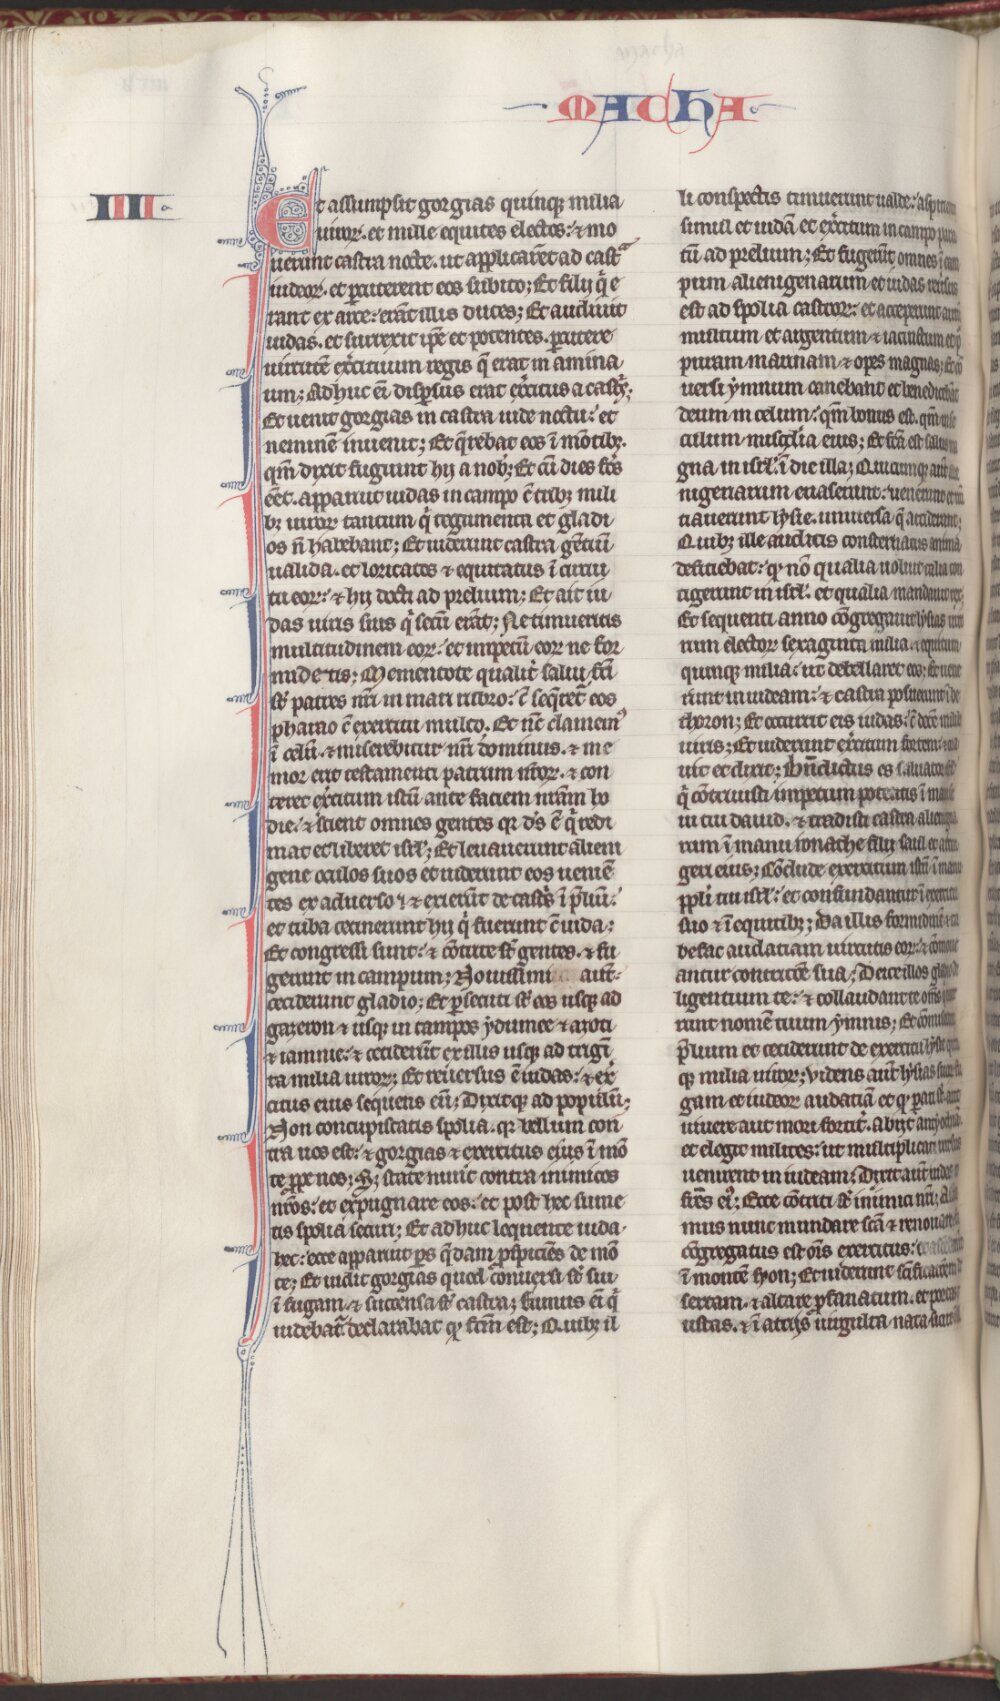 MACHA
IIII
Et assumpsit gorgias quinq; milia
uiroꝝ. et mille equites electos: ⁊ mo
uerunt castra nocte. ut applicarēt ad castᵃ
iudeoꝝ. et ꝑcuterent eos subito; Et filij q̇ e
rant ex arce: erāt illis duces; Et audiuit
iudas. et surrexit ip̄e et potentes. ꝑcutere
uirtutē ex̄cituum regis q̄ erat in amma
um; Adhuc eī disꝑsus erat ex̄citus a castꝝ;
Et uenit gorgias in castra iude noctu: et
neminē inuenit; Et q̄rebat eos ī mōtibꝫ.
qm̄ dixit fugiunt hij a nob̄; Et cū dies fc̄s
eēt. apparuit iudas in campo c̄ tribꝫ mili
bꝫ uiroꝝ tantum q̇ tegumenta et gladi
os n̄ habebant; Et uiderunt castra gētiū
ualida. et loricatos ⁊ equitatus ī cirtui
tu eoꝝ: ⁊ hij docti ad prelium; Et ait iu
das uiris suis q̇ secū erāt; Ne timueritis
multitudinem eoꝝ: et impetū eoꝝ ne for
midetis; Mementote qualit̄ salui fc̄i
st̄ patres nr̄i in mari rubro: c̄ seq̄ret̄ eos
pharao c̄ exercitu multo. Et nc̄ clamemꝰ
ī celū. ⁊ miserebitur nr̄i dominus. ⁊ me
mor erit testamenti patrum nr̄oꝝ. ⁊ con
teret ex̄citum istū ante faciem nr̄am ho
die: ⁊ scient omnes gentes qꝛ d̄s ē q̇ redi
mat et liberet isrł; Et leuauerunt aliem
gene oculos suos et uiderunt eos ueniē
tes ex aduerso ⁊ exierūt de castꝝ ī p̄liū:
et tuba cecinerunt hij q̇ fuerunt c̄ iuda:
Et congressi sunt: ⁊ cōtrite st̄ gentes. ⁊ fu
gerunt in campum; Nouissimi aut̄:
ceciderunt gladio; Et ꝑsecuti st̄ eos usq; ad
gazeron ⁊ usq; in campos ẏdumee ⁊ azoti
⁊ iamnie: ⁊ ceciderūt ex illis usq; ad trigī
ta milia uiroꝝ; Et reuersus ē iudas: ⁊ ex̄
citus eius sequens eū; Dixitq; ad populū;
Non concupiscatis spolia. qꝛ bellum con
tra uos est: ⁊ gorgias ⁊ exercitus eius ī mō
te ꝓpe nos; Sꝫ state nunc contra inimicos
nr̄os: et expugnare eos: et post hec sume
tis spolia securi; Et adhuc loquente iuda
hec: ecce apparuit ꝑs q̄dam ꝓspiciēs de mō
te; Et uidit gorgias quod conuersi st̄ sui
ī fugam ⁊ succensa st̄ castra; fumus eī q̇
uidebat̄ declarabat qꝫ fc̄m est; Quibꝫ il
li conspectis timuerunt ualde:
simul et iudā et ex̄citum in campo
tū ad prelium; Et fugerūt omnes ī
pum alienigenarum et iudas
est ad spolia castroꝝ: et acceperunt
multum et argentum ⁊ iacinctum et
puram marinam ⁊ opes magnas;
uersi ẏmnium canebant et benedicebāt
deum in celum: qm̄ bonus est. qm̄
culum mis̄c̄lia eius; Et fc̄a est salus
gna in isrł ī die illa; Quicumq; aut̄
nigenarum euaserunt: uenerunt et
tiauerunt lẏsie. uniuersa q̄ acciderant;
Quibꝫ ille auditis consternatus anima
deficiebat: qꝫ nō qualia uoluit talia con
tigerunt in isrł. et qualia mandauit
Et sequenti anno cōgregauit lẏsias
rum electoꝝ sexaginta milia. ⁊ equitum
quinque milia: ut debellaret eos; Et uene
runt in iudeam: ⁊ castra posuerunt ī be
thoron; Et occurrit eis iudas: c̄ decē milib
uiris; Et uiderunt ex̄citum fortem:
uit et dixit; Bn̄dictus es saluator
q̇ cōtriuisti impetum potentis ī manu
ui tui dauid. ⁊ tradisti castra alienigena
rum ī manu ionathe filij saul et armi
geri eius; Cōclude exercitum istū ī manu
ppl̄i tui isrł: et confundantur ī exercitu
suo ⁊ ī equitibꝫ; Da illis formidinē
befac audaciam uirtutis eoꝝ: ⁊ cōmoue
antur contritiōe sua; Deice illos gladio di
ligentium te: ⁊ collaudant te om̄s
runt nomē tuum ẏmnis; Et cōmiserūt
p̄lium et ceciderunt de exercitu lẏsie
qꝫ milia uiroꝝ; Videns aut̄ lẏsias suoꝝ fu
gam et iudeoꝝ audatiā et qꝫ parati st̄ aut
uiuere aut mori fortit̄. abijt antiochiā
et elegit milites: ut multiplicati
uenirent in iudeam; Dixit aut̄ iudas
fr̄es eiꝰ; Ecce cōtriti st̄ inimici nr̄i;
mus nunc mundare sc̄a ⁊ renouare;
cōgregatus est om̄is exercitus:
ī montē sẏon; Et uiderunt sc̄ificationē
sertam. ⁊ altare ꝓfanatum. et portas
ustas. ⁊ ī atrijs uirgulta nata